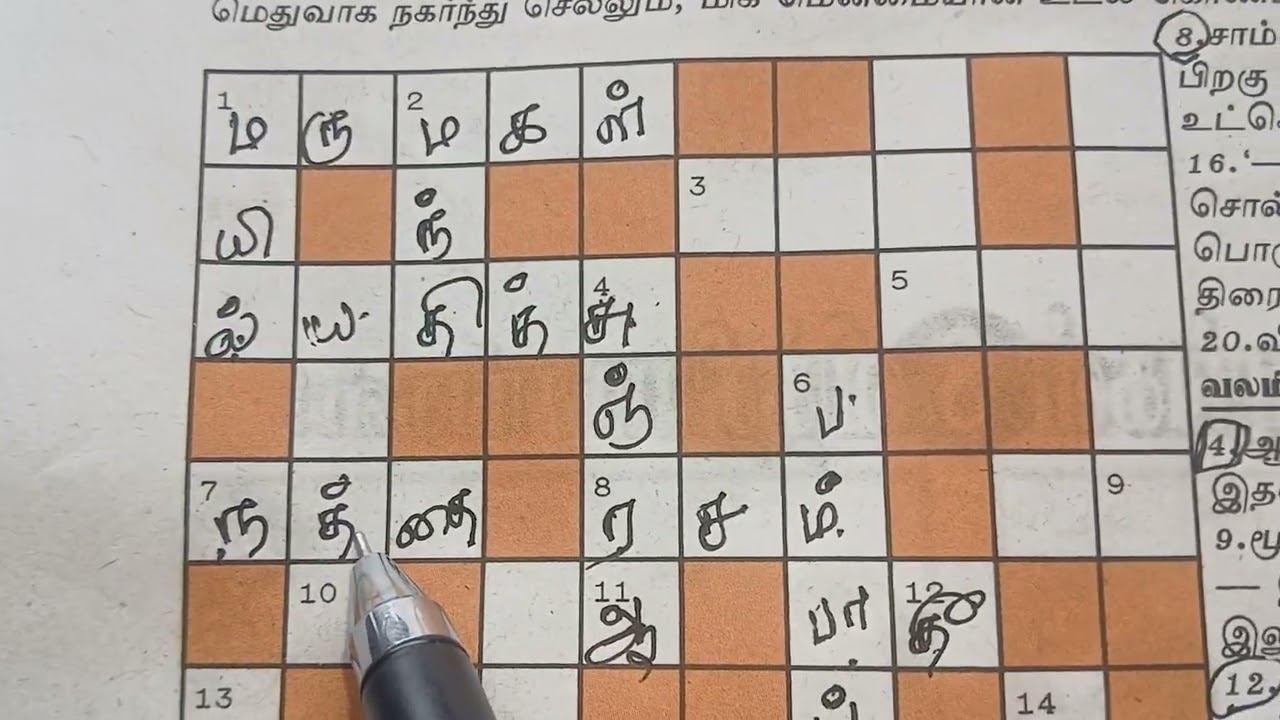 மெதுவாக நகர்ந்து செல்லும், மிக மென்மையான உடல்
8.சாம்
பிறகு
16.‘—
சொல்
திரை
20.வ
வலமி
4.ஆ
இத
9.மூ
12.
1 ம ரு 2 ம க ள்
யி ந் 3
ல் ய தி த் 4 சு 5
ஞ் 6 ப
7 ந த் தை 8 ர ச ம் 9
10 11 பா 12
13 ல் 14